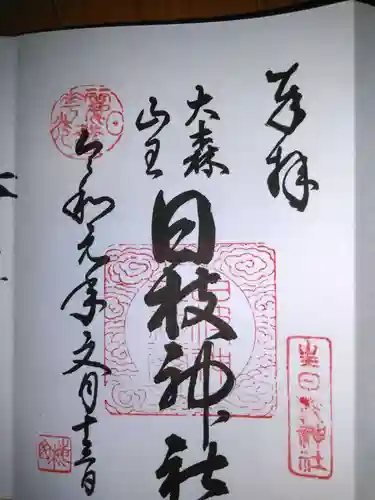 奉拝
大森
山王
日枝神社
令和元年文月十三日
山王日枝神社